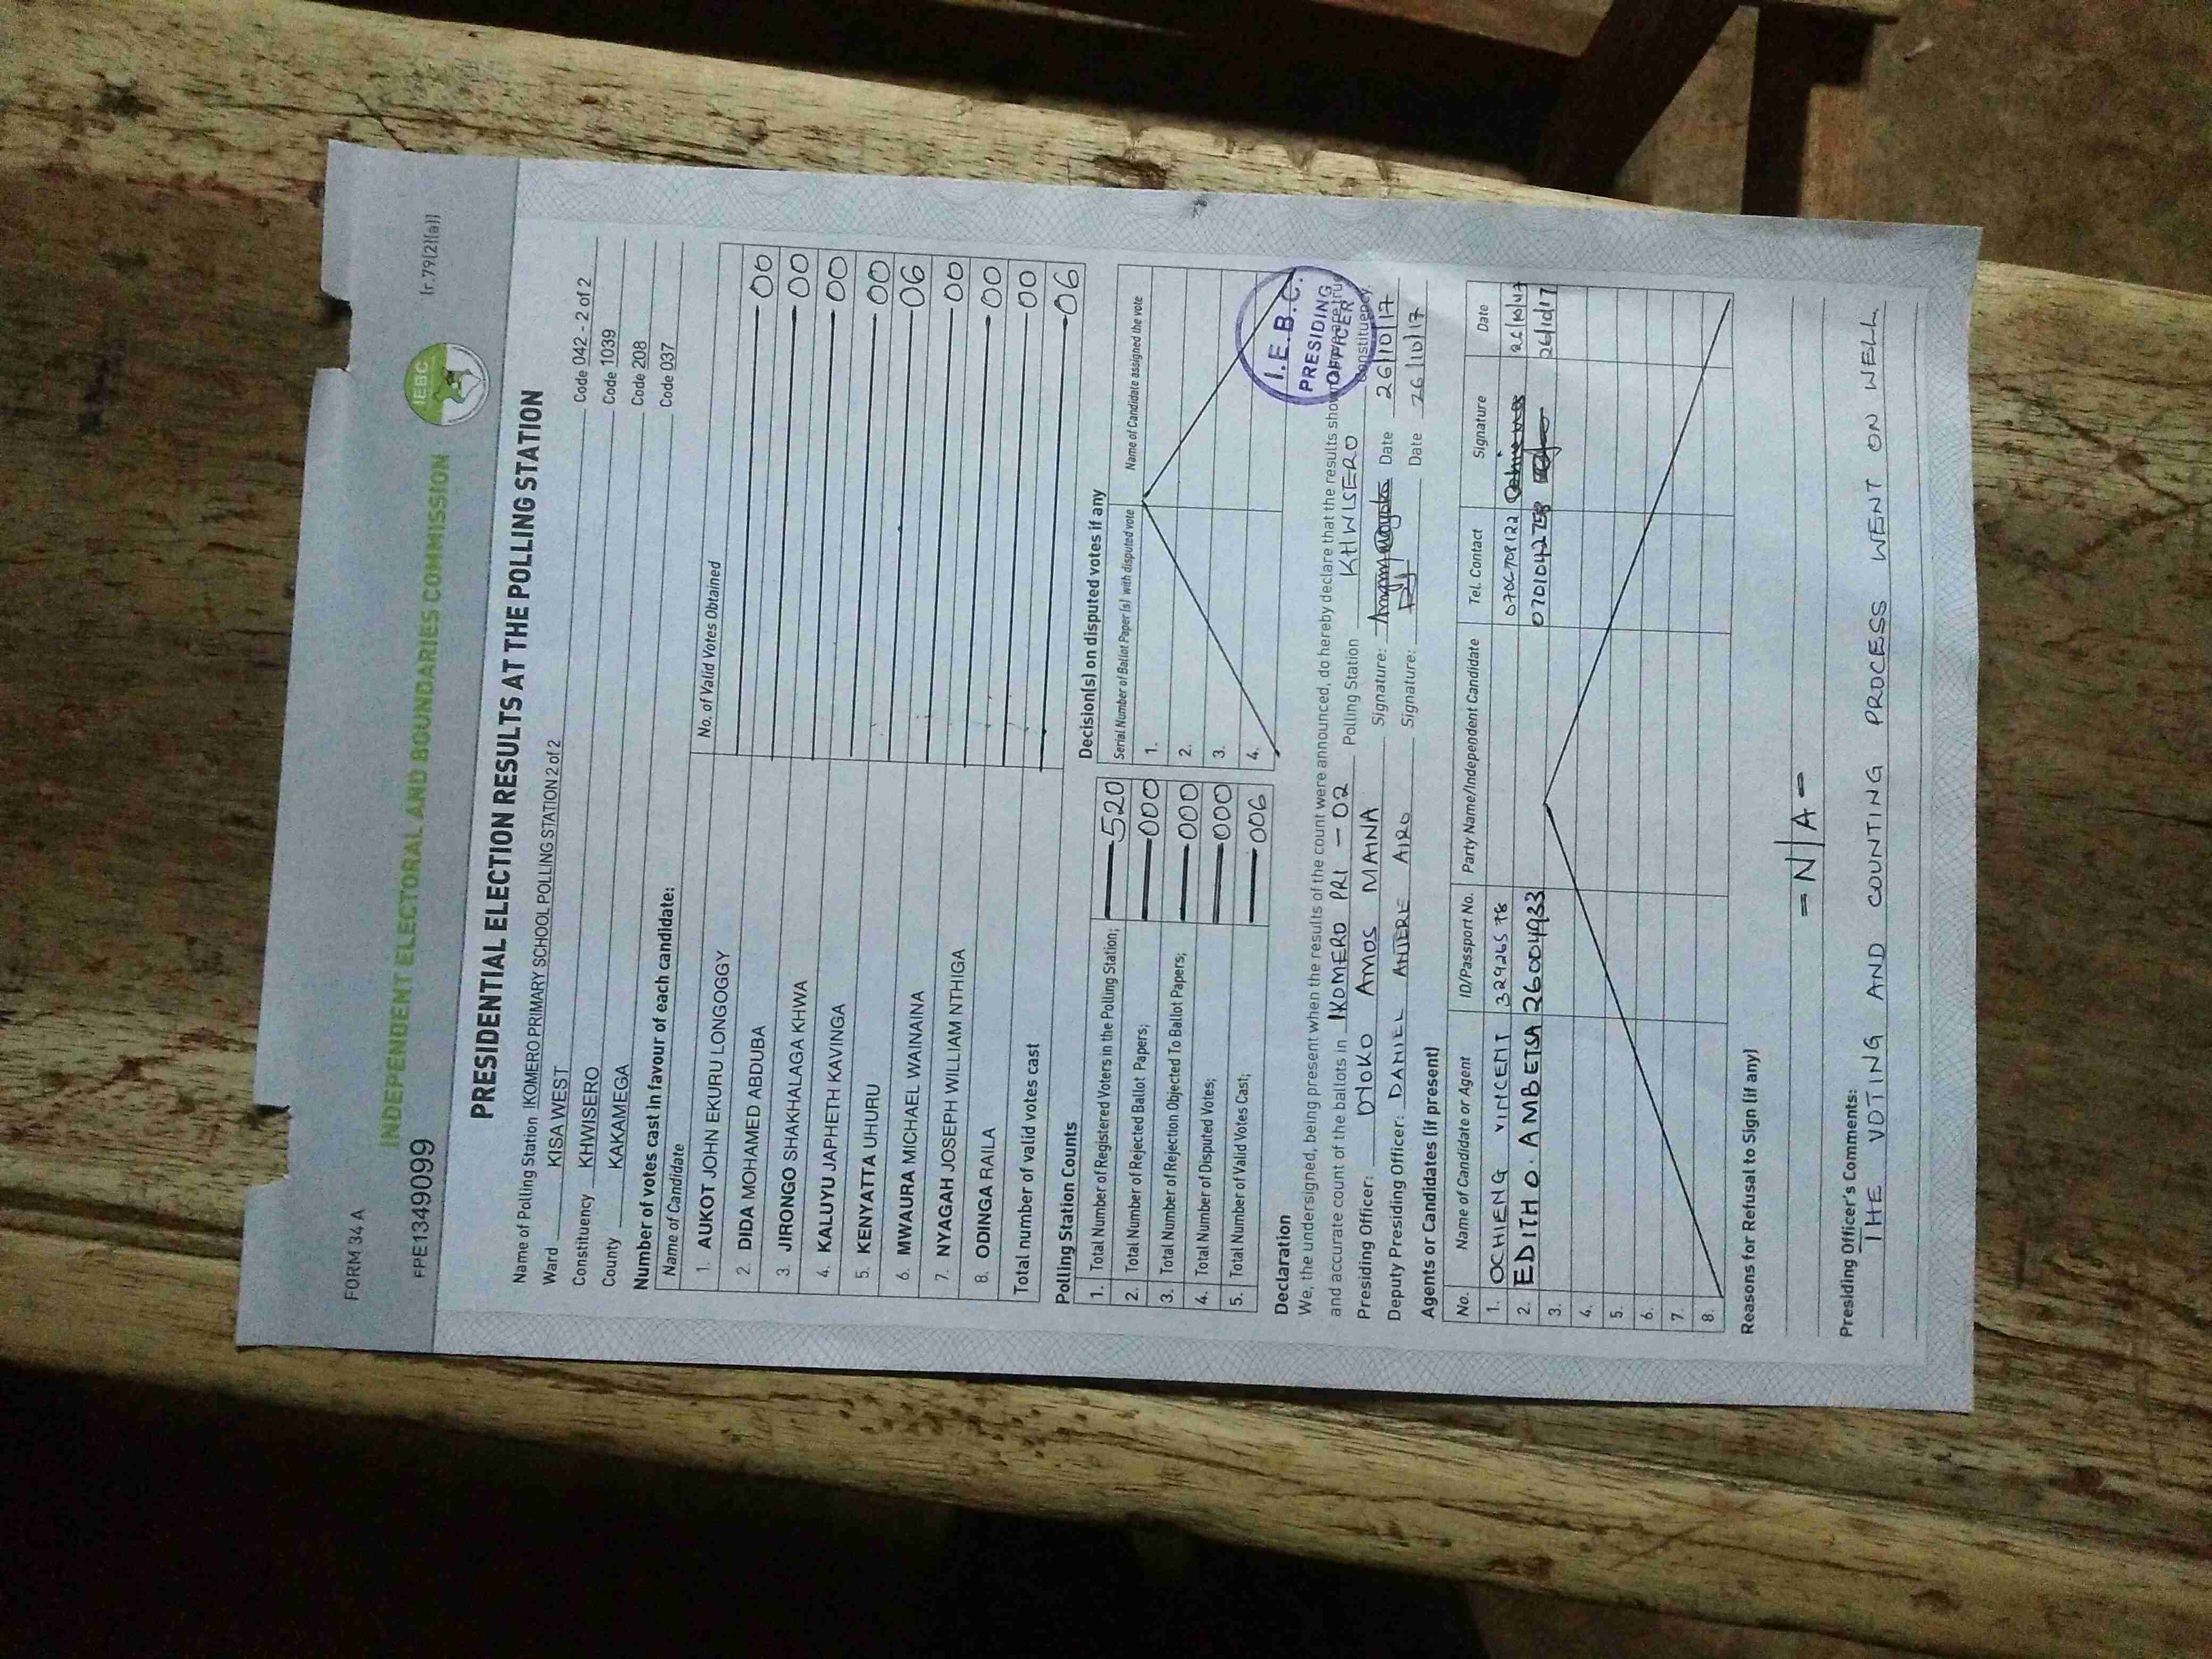 FORM 34 A
[r.79(2)(a)]
IEBC
INDEPENDENT ELECTORAL AND BOUNDARIES COMMISSION
FPE1349099
PRESIDENTIAL ELECTION RESULTS AT THE POLLING STATION
Name of Polling Station IKOMERO PRIMARY SCHOOL POLLING STATION 2 of 2 Code 042 - 2 of 2
Ward KISA WEST Code 1039
Constituency KHWISERO Code 208
County KAKAMEGA Code 037
Number of votes cast in favour of each candidate:
Name of Candidate No. of Valid Votes Obtained
1. AUKOT JOHN EKURU LONGOGGY 00
2. DIDA MOHAMED ABDUBA 00
3. JIRONGO SHAKHALAGA KHWA 00
4. KALUYU JAPHETH KAVINGA 00
5. KENYATTA UHURU 06
6. MWAURA MICHAEL WAINAINA 00
7. NYAGAH JOSEPH WILLIAM NTHIGA 00
8. ODINGA RAILA 00
Total number of valid votes cast 06
Polling Station Counts
1. Total Number of Registered Voters in the Polling Station; 520
2. Total Number of Rejected Ballot Papers; 000
3. Total Number of Rejection Objected To Ballot Papers; 000
4. Total Number of Disputed Votes; 000
5. Total Number of Valid Votes Cast; 006
Decision(s) on disputed votes if any
Serial Number of Ballot Paper (s) with disputed vote Name of Candidate assigned the vote
1.
2.
3.
4.
I.E.B.C.
PRESIDING
OFFICER
Declaration
We, the undersigned, being present when the results of the count were announced, do hereby declare that the results shown
and accurate count of the ballots in IKOMERO PRI - 02 Polling Station KHWISERO Constituency.
Presiding Officer: OLOKO AMOS MAINA Signature: Date 26/10/17
Deputy Presiding Officer: DANIEL AHERE AIRO Signature: Date 26/10/17
Agents or Candidates (if present)
No. Name of Candidate or Agent ID/Passport No. Party Name/Independent Candidate Tel. Contact Signature Date
1. OCHIENG VINCENT 32926578 26/10/17
2. EDITH O. AMBETSA 26004933 0701042758 26/10/17
3.
4.
5.
6.
7.
8.
Reasons for Refusal to Sign (if any)
= N/A =
Presiding Officer's Comments:
THE VOTING AND COUNTING PROCESS WENT ON WELL